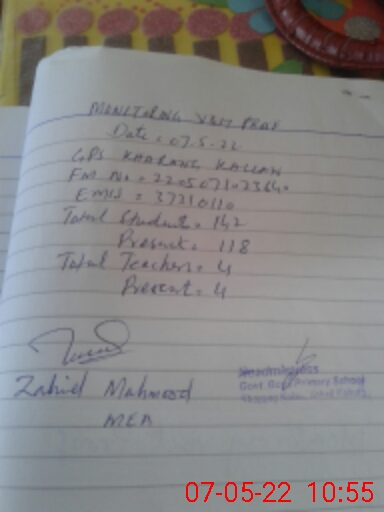 MONITORING VISIT PROF
Date = 07.5.22
GPS KHARANG KALLAN
EMIS = 37210110
Total Students = 142
Present = 118
Total Teachers = 4
Present = 4
Zahid Mahmood
MEA
Headmistress
Govt. Primary School
07-05-22 10:55